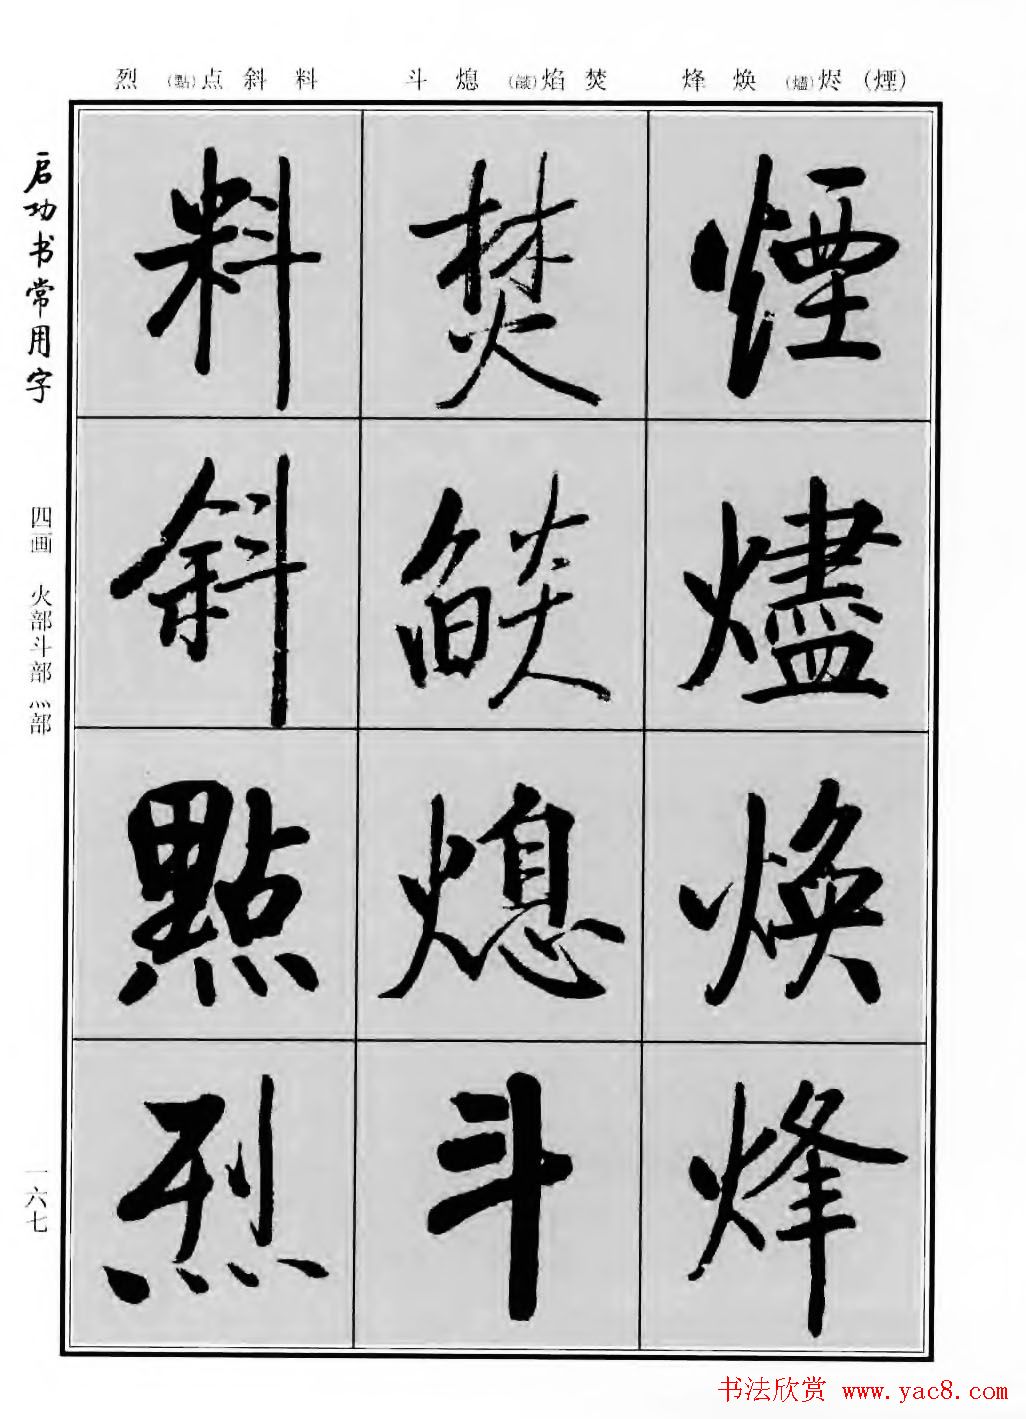 (煙)烬(燼)焕烽
焚焰(燄)熄斗
料斜点(點)烈
煙
燼
焕
烽
焚
燄
熄
斗
料
斜
點
烈
启功书常用字
四画 火部斗部灬部
一六七
书法欣赏 www.yac8.com